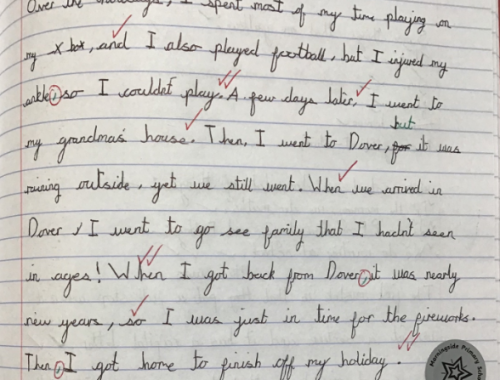 Over the holidays, I spent most of my time playing on
my x box, and I also played football, but I injured my
ankle, so I couldn't play. A few days later, I went to
my grandma's house. Then, I went to Dover, but it was
raining outside, yet we still went. When we arrived in
Dover, I went to go see family that I hadn't seen
in ages! When I got back from Dover, it was nearly
new years, so I was just in time for the fireworks.
Then, I got home to finish off my holiday.
Morningside Primary